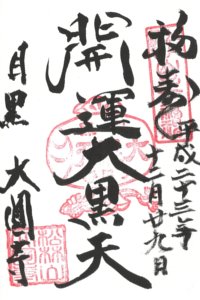 福寿
平成二十三年
十二月廿九日
開運大黒天
目黒 大圓寺
松林山